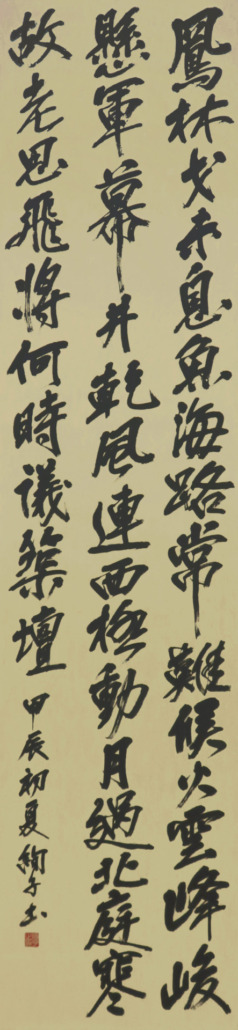 鳳林戈未息魚海路常難候火雲峰峻
懸軍幕井乾風連西極動月過北庭寒
故老思飛將何時議築壇
甲辰初夏絢子